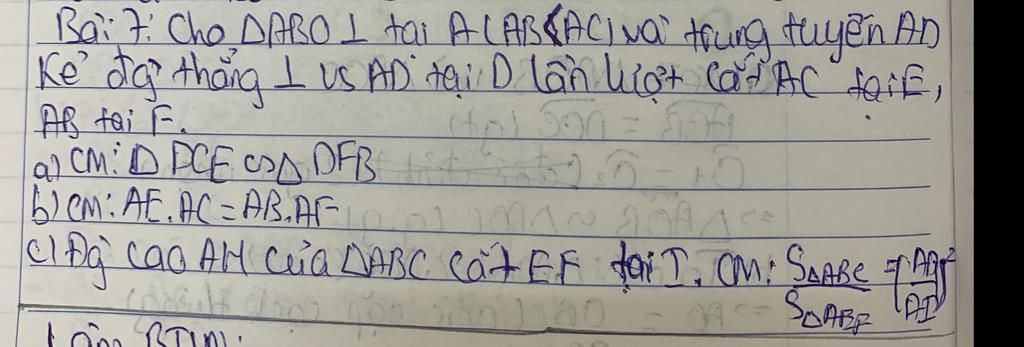 Bài 7: Cho ΔABO ⊥ tại A (AB<AC) vài trung tuyến AD
Kẻ đg thẳng ⊥ vs AD tại D lần lượt cắt AC tại E,
AB tại F.
a) CM: Δ DCE ∽Δ DFB
b) CM: AE.AC=AB.AF
c) Đg cao AH của ΔABC cắt EF tại I. CM: SΔABC/SΔAEF =(AD/AI)²